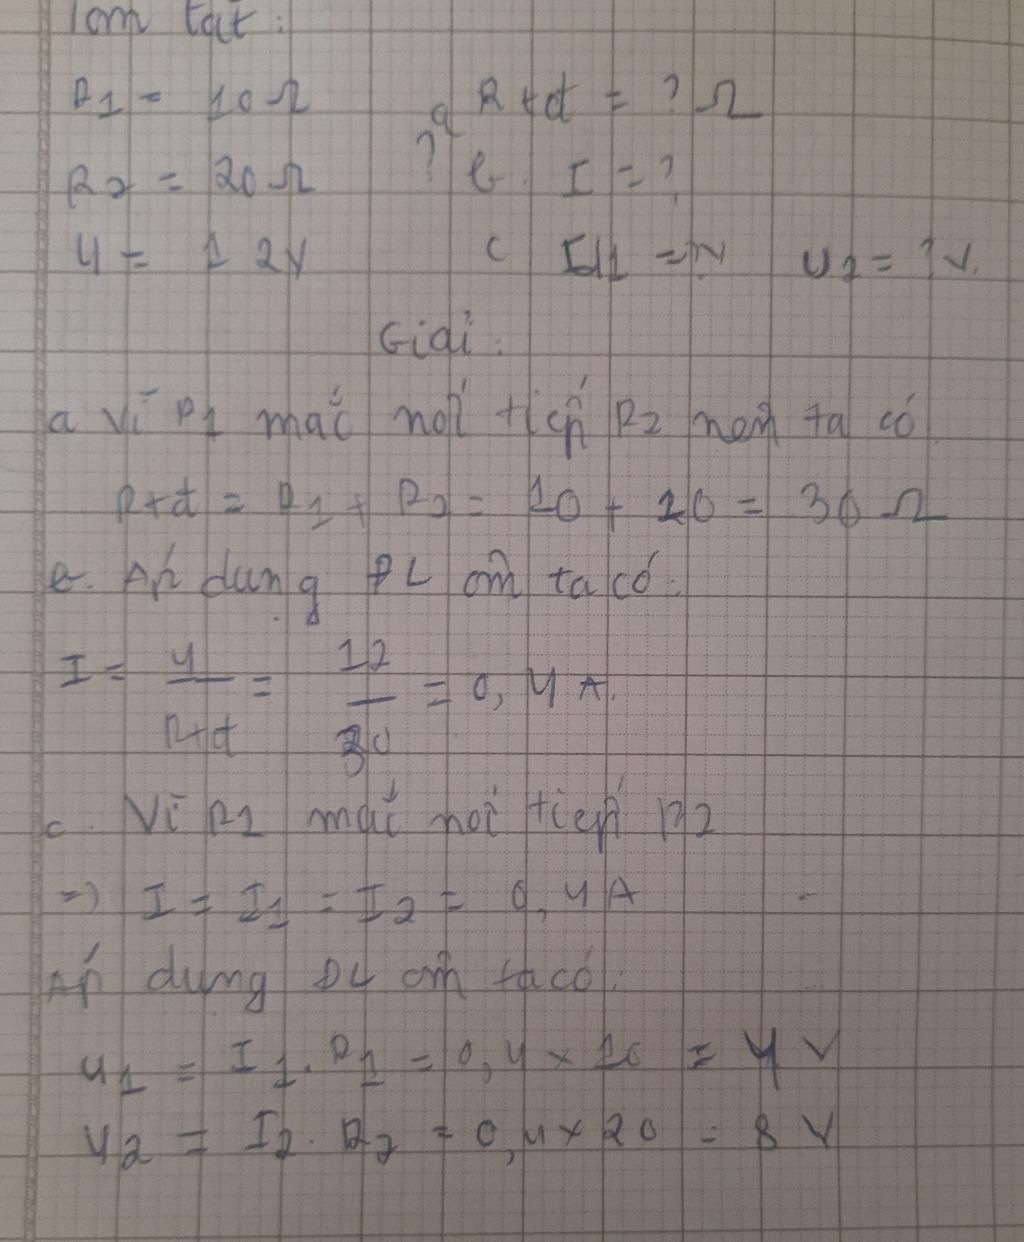 Tóm tắt:
R1 = 10 Ω a R tđ = ? Ω
R2 = 20 Ω ? b. I = ?
U = 12V c U1 = ?V U2 = ?V.
Giải:
a Vì R1 mắc nối tiếp R2 nên ta có
Rtđ = R1 + R2 = 10 + 20 = 30 Ω
b. Áp dụng ĐL ôm ta có:
I = U / Rtđ = 12 / 30 = 0,4 A.
c. Vì R1 mắc nối tiếp R2
=> I = I1 = I2 = 0,4A
Áp dụng ĐL ôm ta có:
U1 = I1. R1 = 0,4 x 10 = 4 V
U2 = I2. R2 = 0,4 x 20 = 8 V